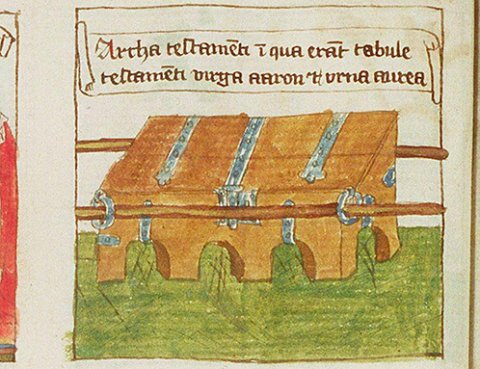 Archa testam̄eti ī qua erāt tabule
testam̄eti virga aaron ⁊ vrna aurea